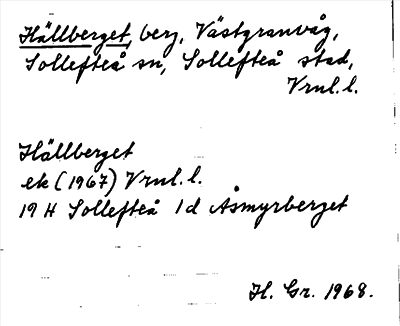 Hällberget, berg, Västgranvåg,
Sollefteå sn, Sollefteå stad,
Vrnl. l.
Hällberget
ek (1967) Vrnl. l.
19 H Sollefteå 1 d Åsmyrberget
H. Gr. 1968.